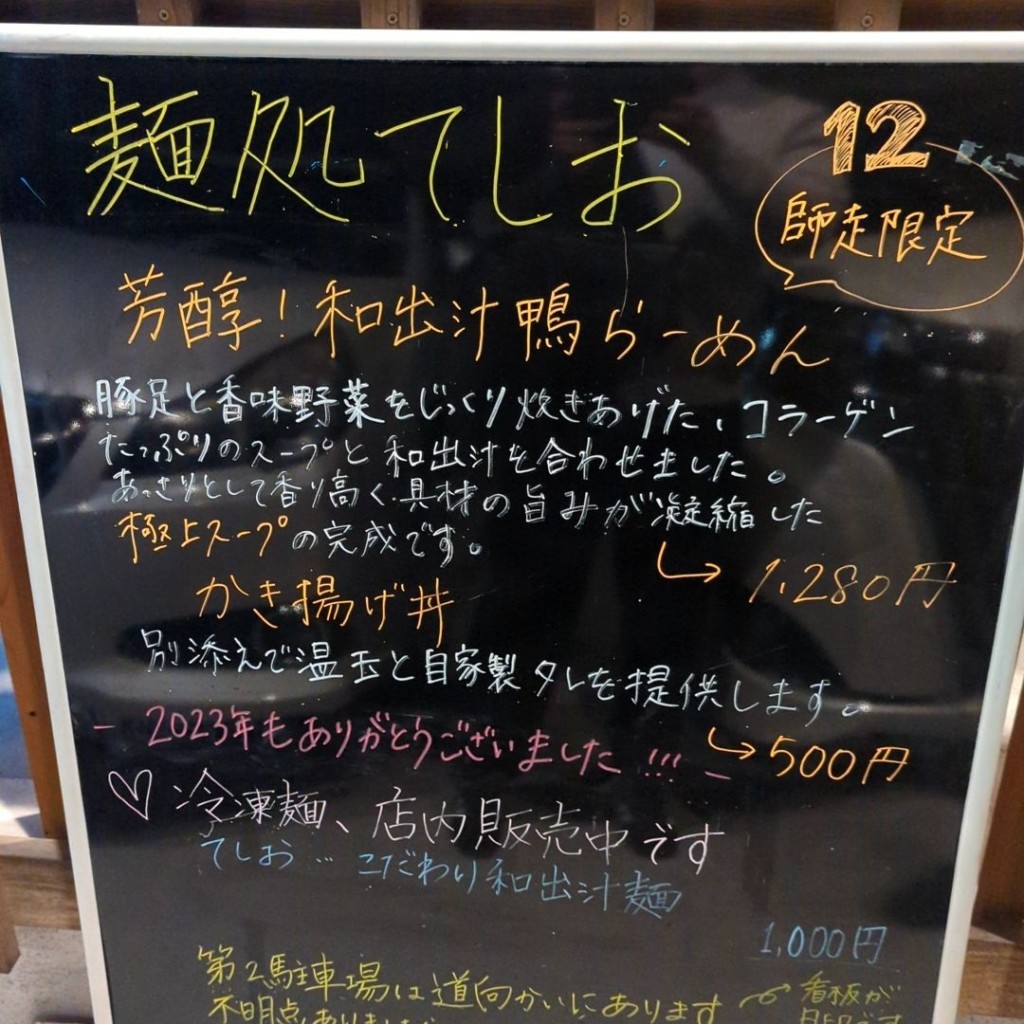 麺処てしお
12
師走限定
芳醇!和出汁鴨らーめん
豚足と香味野菜をじっくり炊きあげた、コラーゲン
たっぷりのスープと和出汁を合わせました。
あっさりとして香り高く具材の旨みが凝縮した
極上スープの完成です。
→1,280円
かき揚げ丼
別添えで温玉と自家製タレを提供します。
- 2023年もありがとうございました!!! -
→500円
♡冷凍麺、店内販売中です
てしお…こだわり和出汁麺
1,000円
第2駐車場は道向かいにあります
看板が
不明点ありましたら